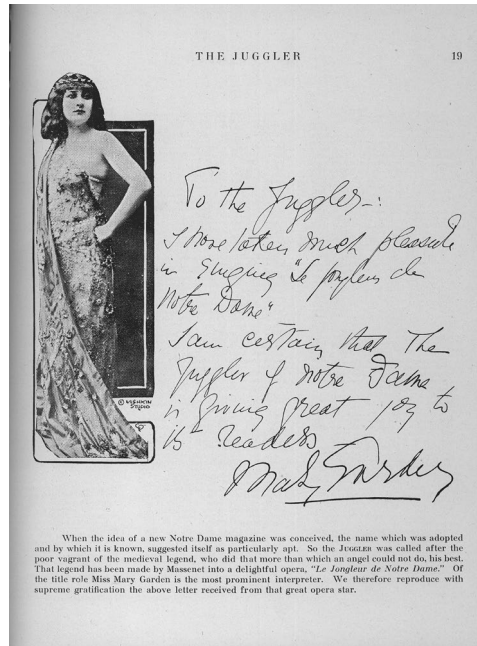 THE JUGGLER
19
To the Juggler—:
I have taken much pleasure
in singing "Le jongleur de
Notre Dame"
I am certain that The
Juggler of Notre Dame
is giving great joy to
its readers
Mary Garden
© MISHKIN
STUDIO
When the idea of a new Notre Dame magazine was conceived, the name which was adopted
and by which it is known, suggested itself as particularly apt. So the JUGGLER was called after the
poor vagrant of the medieval legend, who did that more than which an angel could not do, his best.
That legend has been made by Massenet into a delightful opera, "Le Jongleur de Notre Dame." Of
the title role Miss Mary Garden is the most prominent interpreter. We therefore reproduce with
supreme gratification the above letter received from that great opera star.